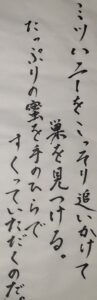 ミツバチをこっそり追いかけて
巣を見つける。
たっぷりの蜜を手のひらで
すくっていただくのだ。